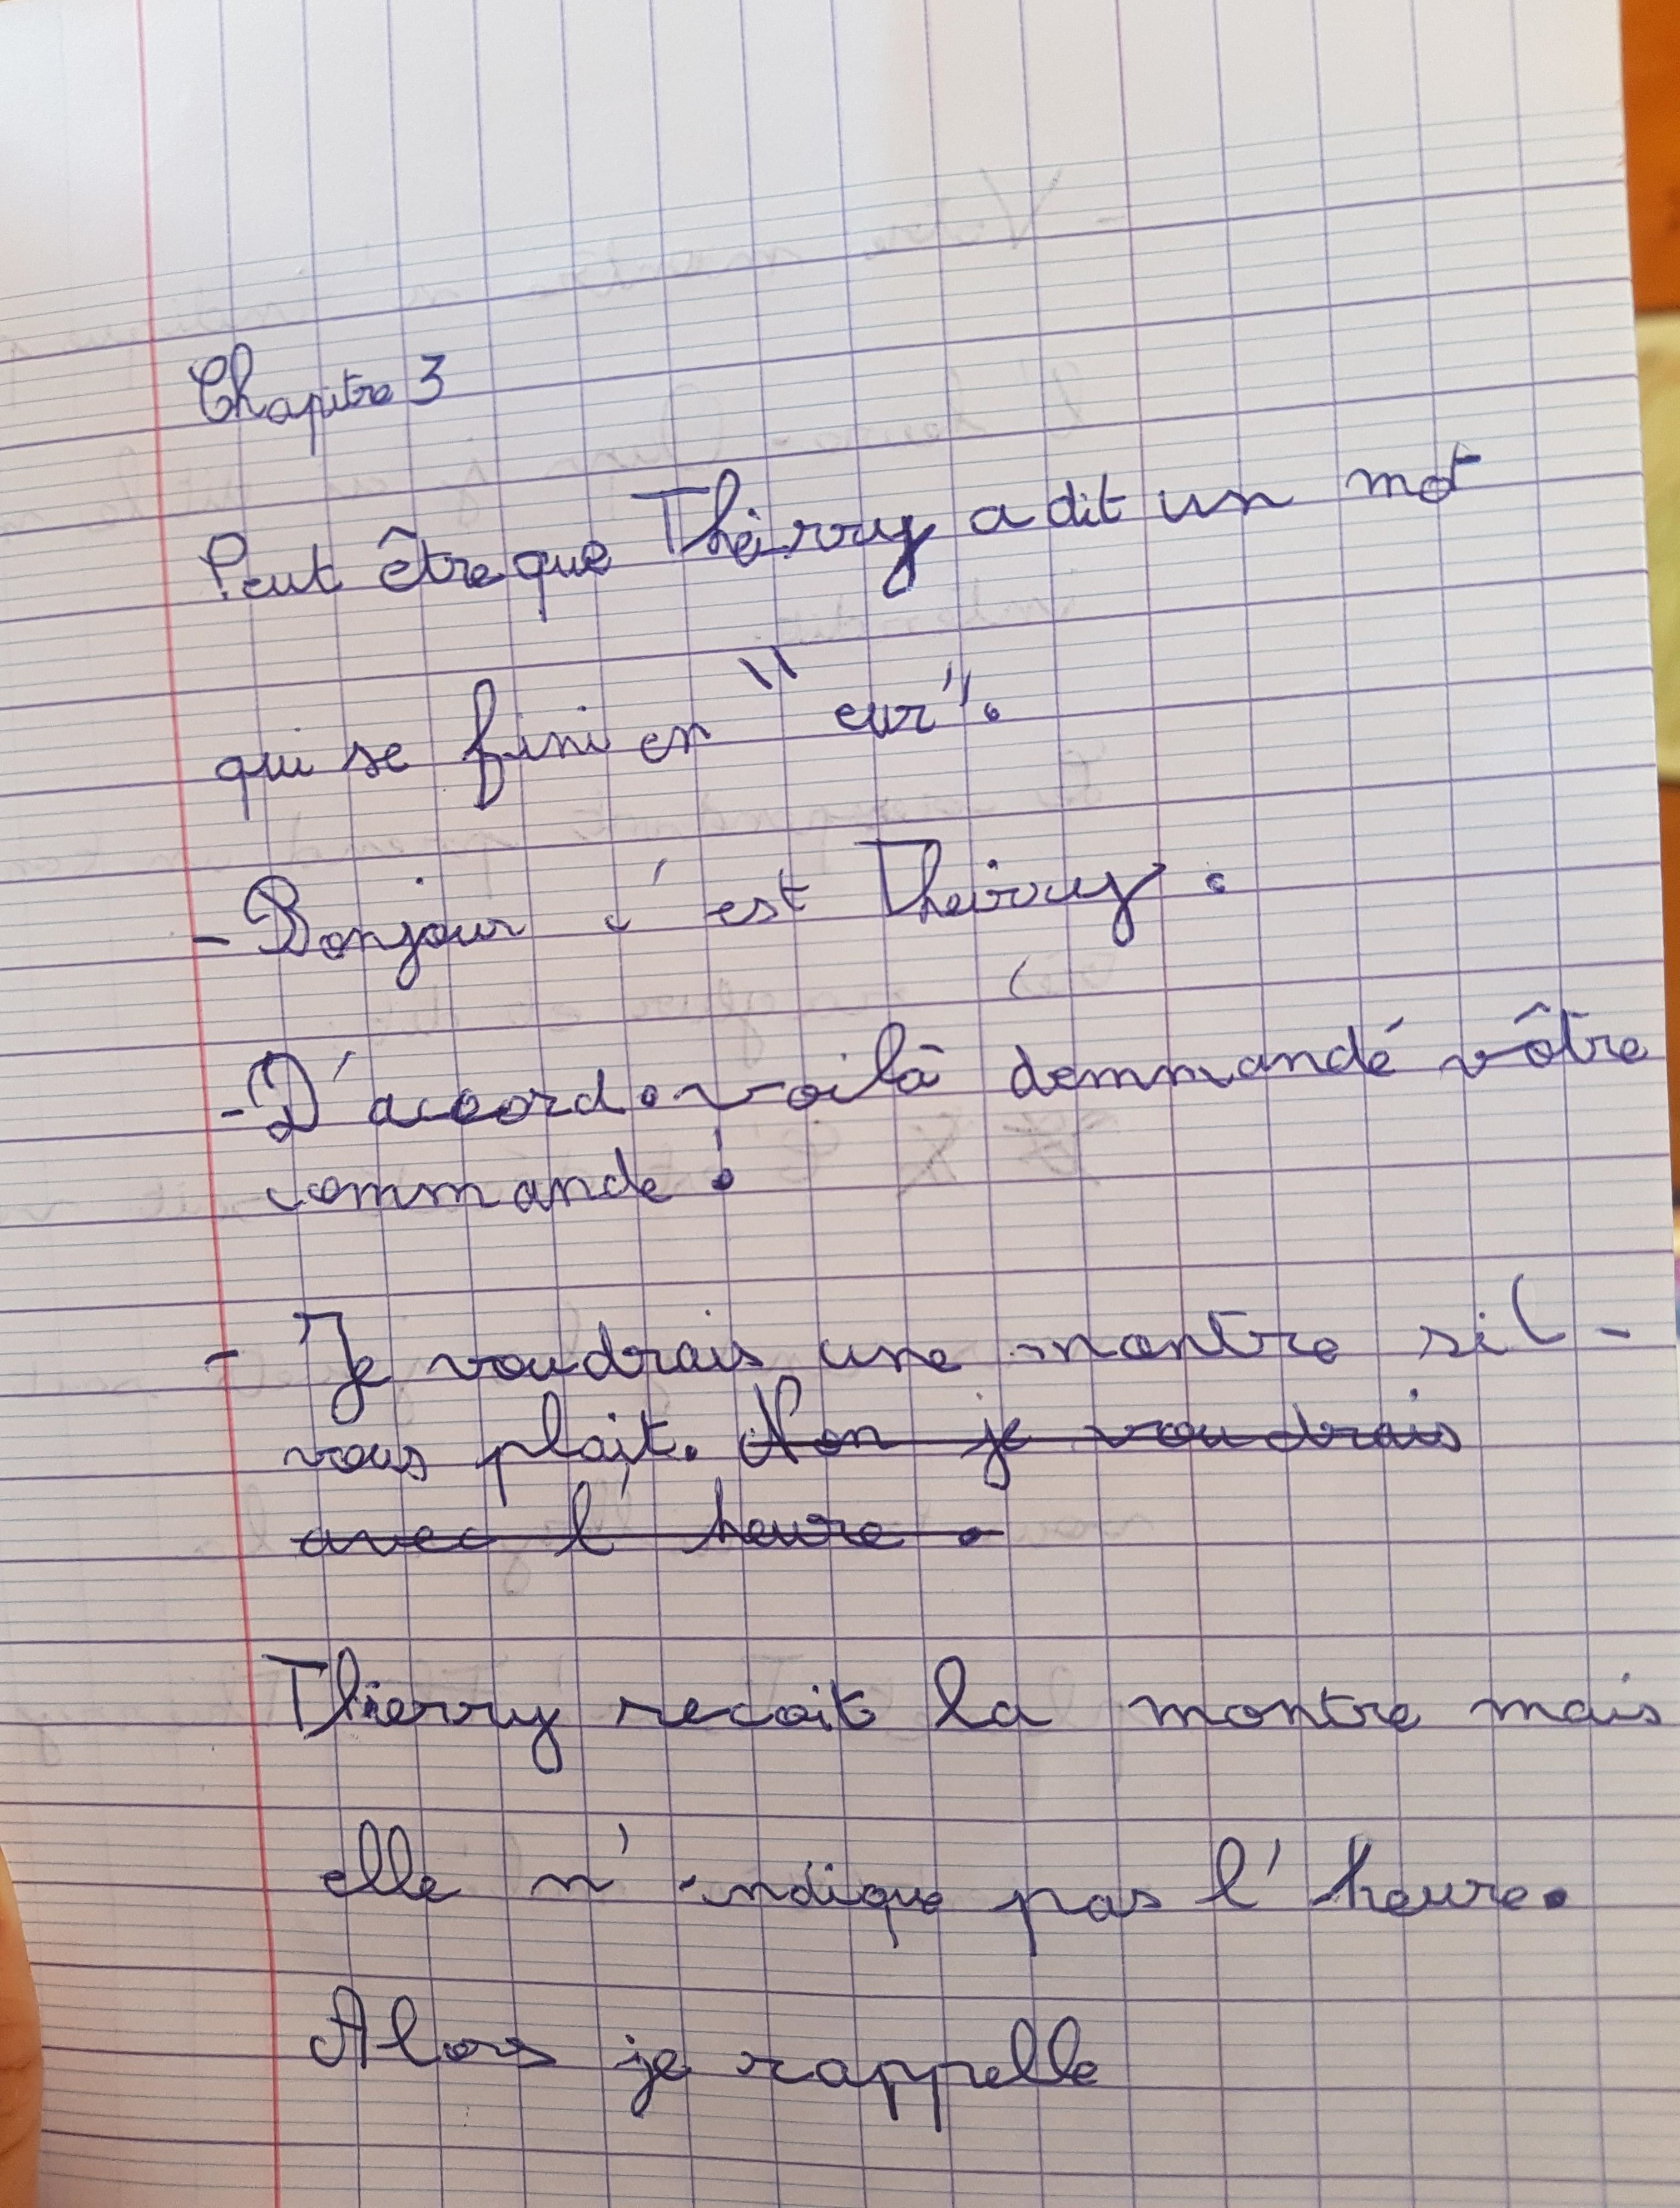 Chapitre 3
Peut être que Theirry a dit un mot
qui se fini en "eur".
- Bonjour c'est Theirry.
- D'acoord. voilà demmandé vôtre
commande !
- Je voudrais une montre sil -
vous plait. Non je voudrais
avec l'heure.
Thierry recoit la montre mais
elle n'indique pas l'heure.
Alors je rappelle